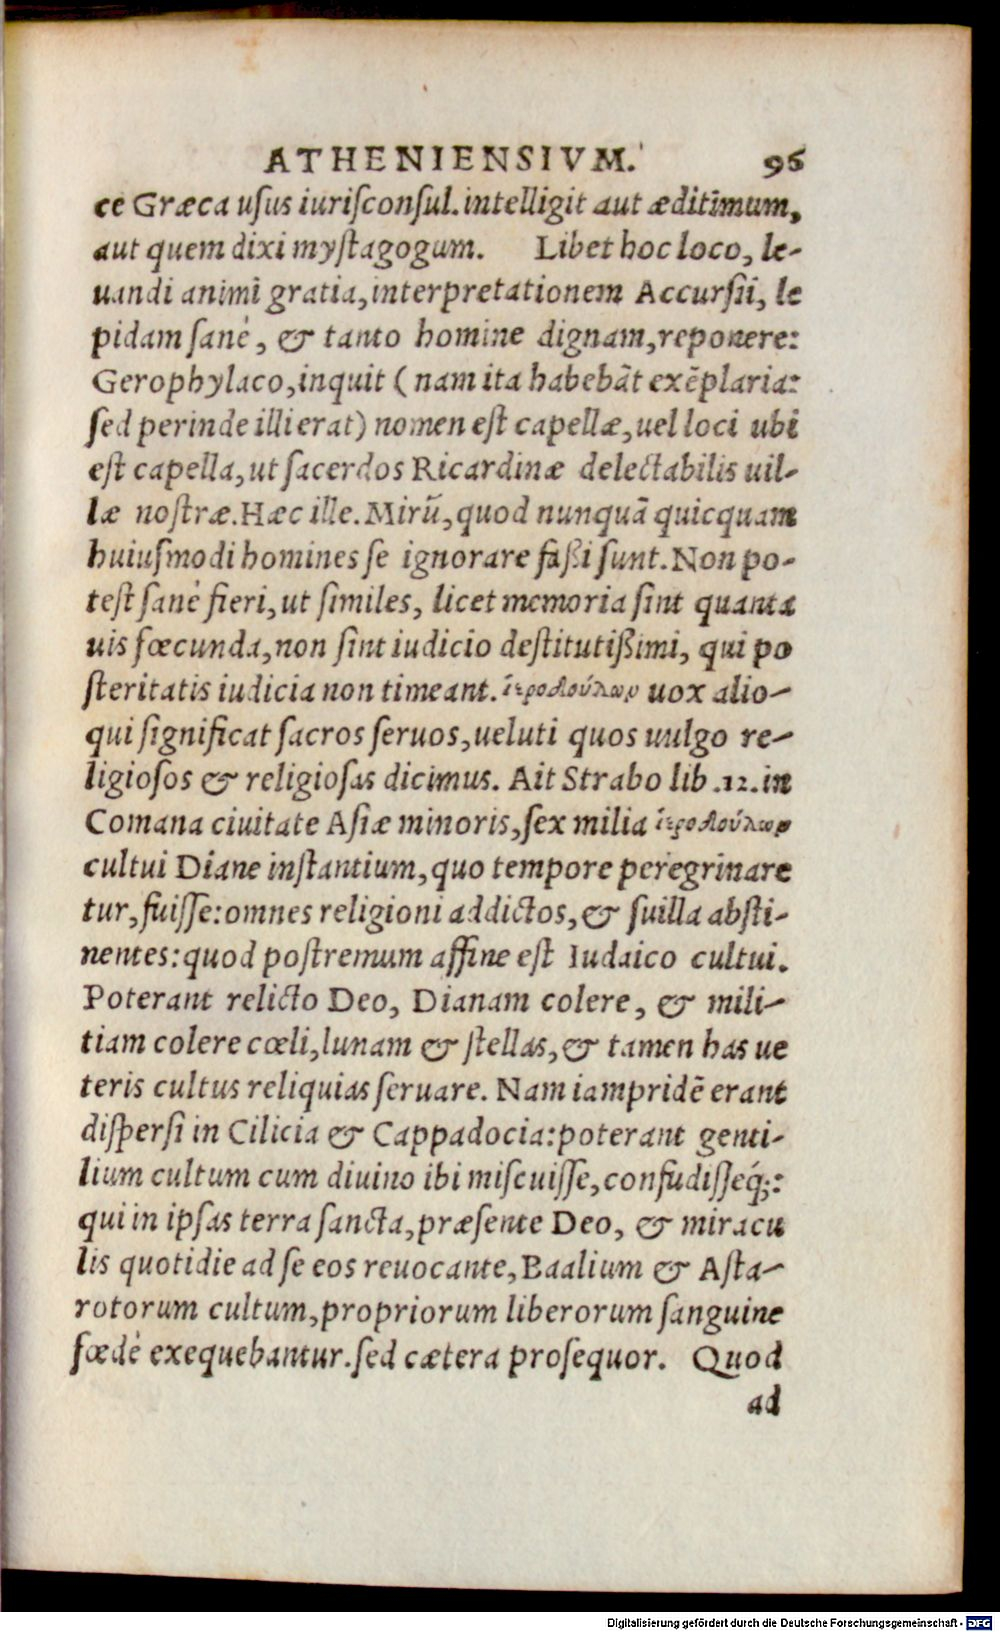 ATHENIENSIVM. 96
ce Græca uſus iuriſconſul. intelligit aut æditimum,
aut quem dixi myſtagogum. Libet hoc loco, le-
uandi animi gratia, interpretationem Accurſii, le
pidam ſanè, & tanto homine dignam, reponere:
Gerophylaco, inquit (nam ita habebāt exēplaria:
ſed perinde illi erat) nomen eſt capellæ, uel loci ubi
eſt capella, ut ſacerdos Ricardinæ delectabilis uil-
læ noſtræ. Hæc ille. Mirū, quod nunquā quicquam
huiuſmodi homines ſe ignorare faßi ſunt. Non po-
teſt ſanè fieri, ut ſimiles, licet memoria ſint quanta
uis fœcunda, non ſint iudicio deſtitutißimi, qui po
ſteritatis iudicia non timeant. ἱεροδούλων uox alio-
qui ſignificat ſacros ſeruos, ueluti quos uulgo re-
ligioſos & religioſas dicimus. Ait Strabo lib .12. in
Comana ciuitate Aſiæ minoris, ſex milia ἱεροδούλων
cultui Diane inſtantium, quo tempore peregrinare
tur, fuiſſe: omnes religioni addictos, & ſuilla abſti-
nentes: quod poſtremum affine eſt Iudaico cultui.
Poterant relicto Deo, Dianam colere, & mili-
tiam colere cœli, lunam & ſtellas, & tamen has ue
teris cultus reliquias ſeruare. Nam iampridē erant
diſperſi in Cilicia & Cappadocia: poterant genti-
lium cultum cum diuino ibi miſcuiſſe, confudiſſeq́;:
qui in ipſas terra ſancta, præſente Deo, & miracu
lis quotidie ad ſe eos reuocante, Baalium & Aſta-
rotorum cultum, propriorum liberorum ſanguine
fœdè exequebantur. ſed cætera proſequor. Quod
ad
Digitalisierung gefördert durch die Deutsche Forschungsgemeinschaft - DFG